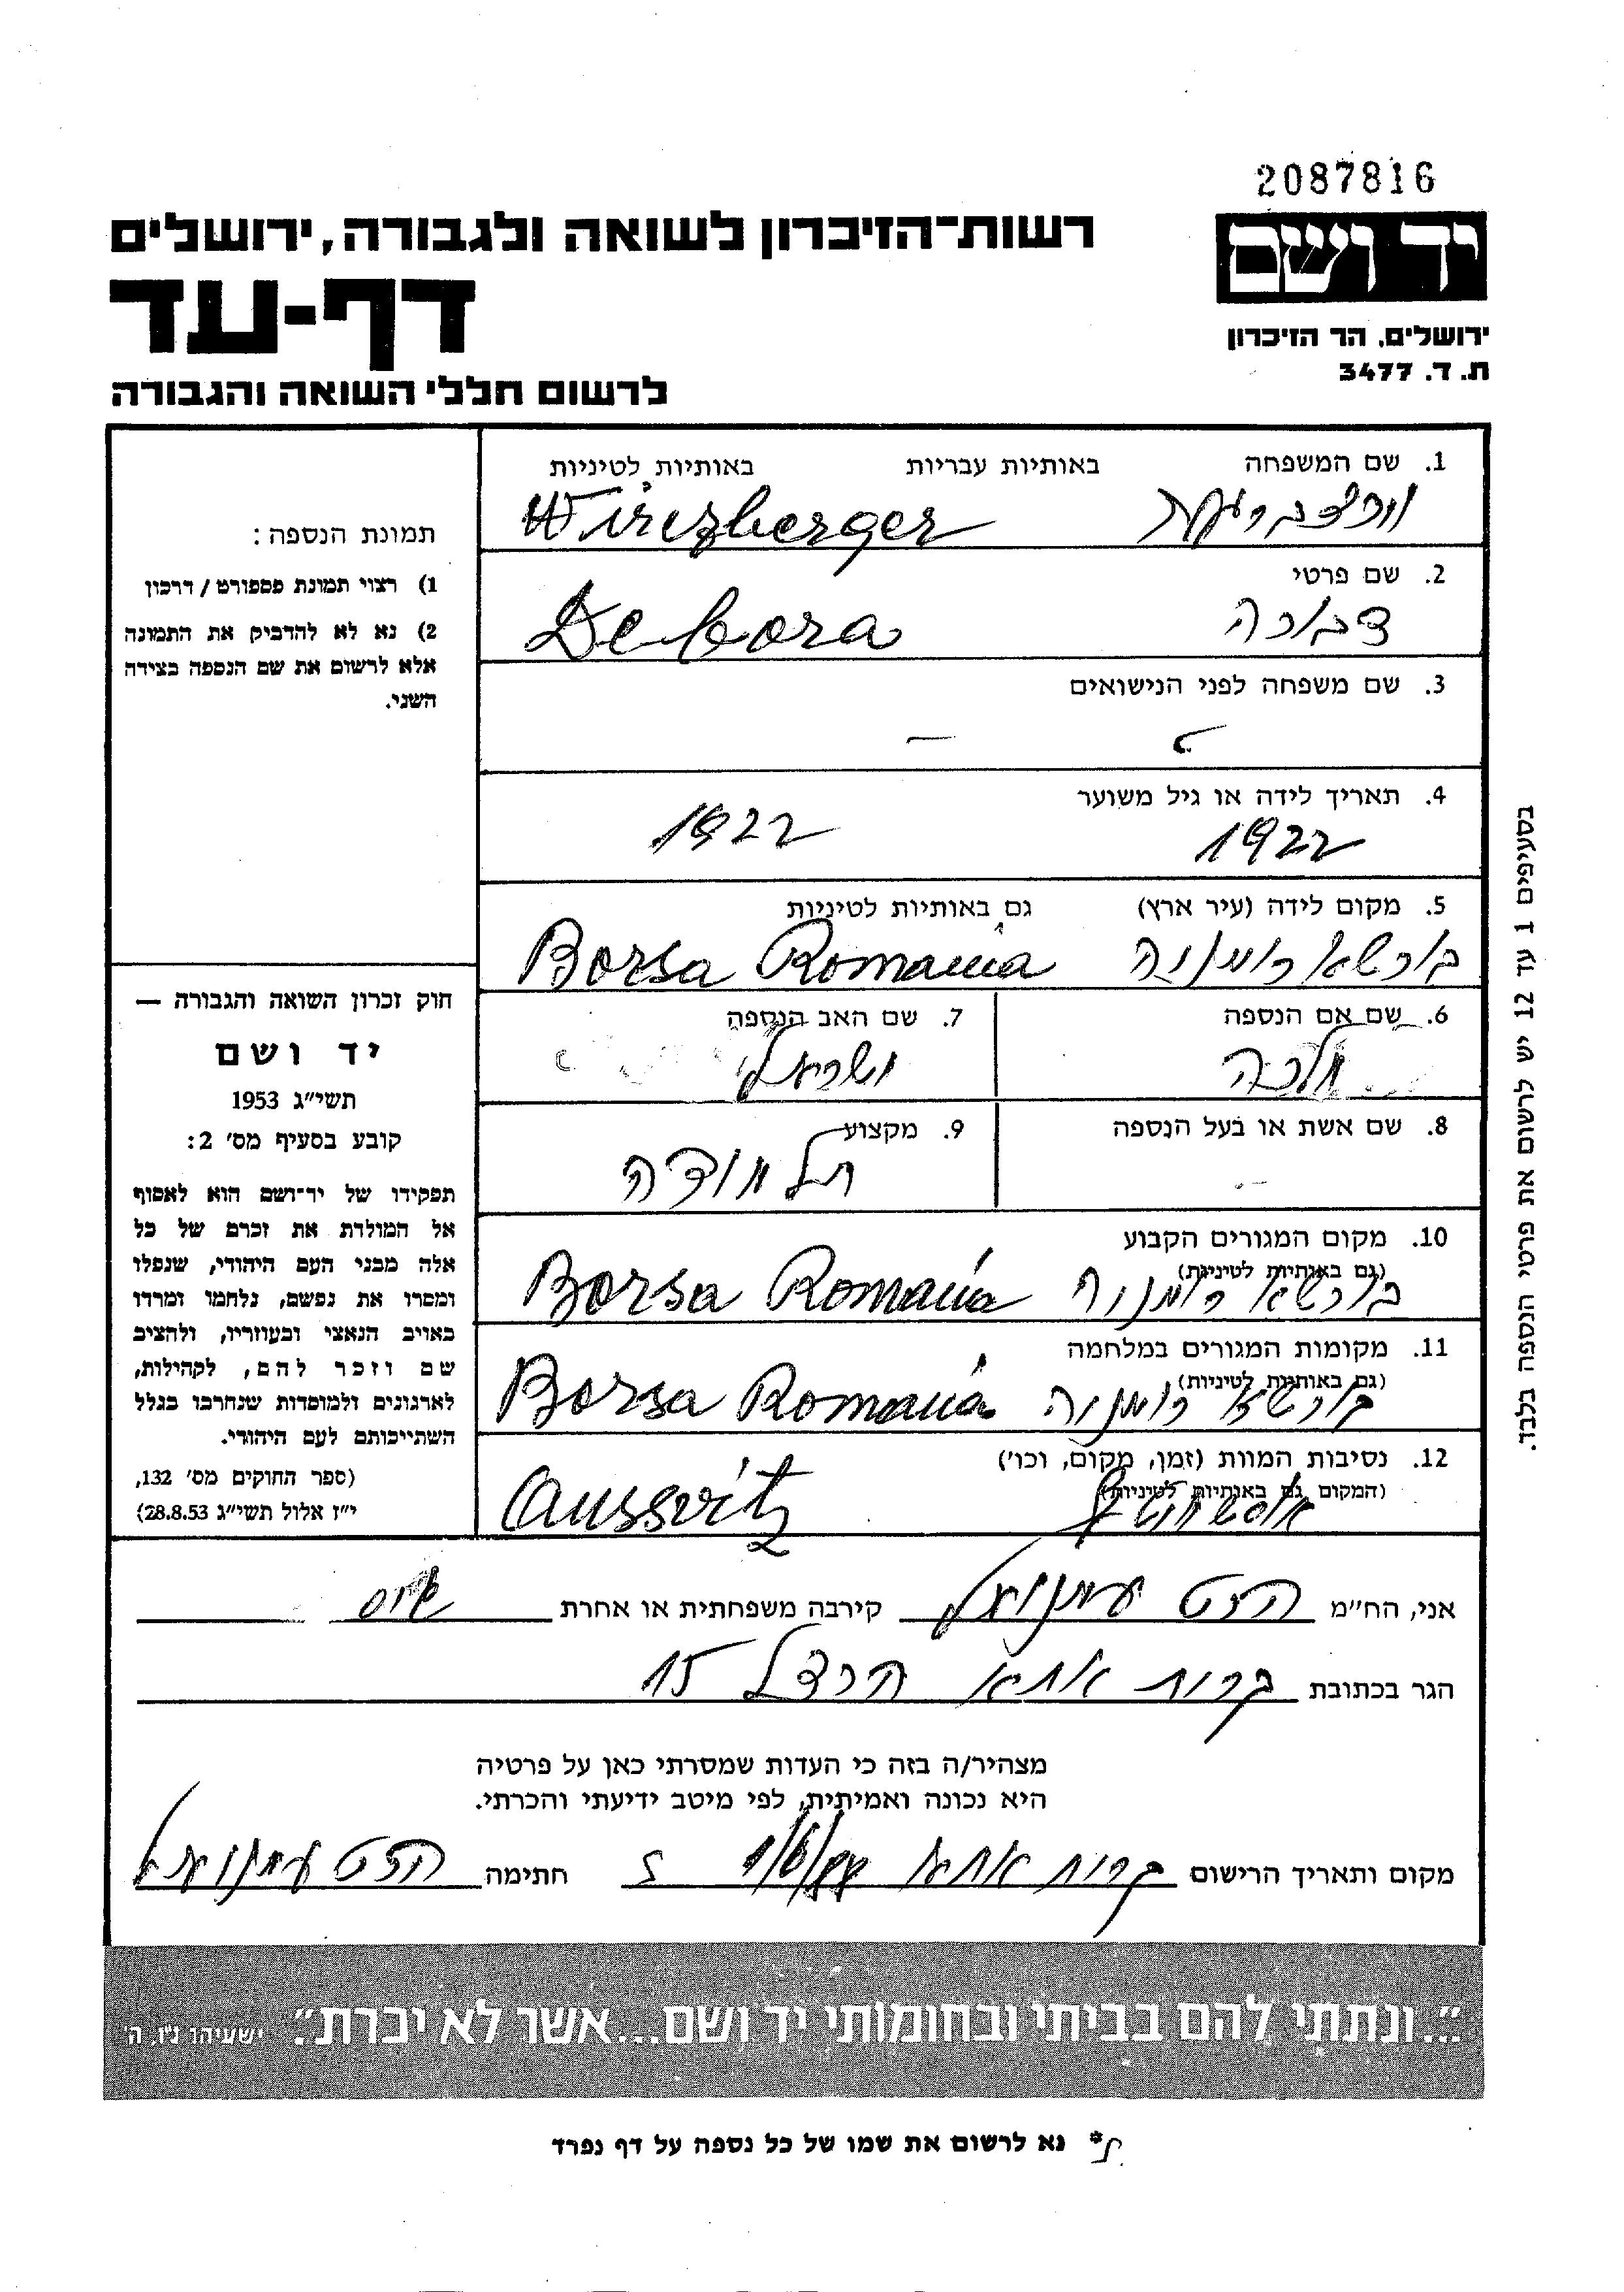 2087816
יד ושם
ירושלים, הר הזיכרון
ת. ד. 3477
רשות־הזיכרון לשואה ולגבורה, ירושלים
דף-עד
לרשום חללי השואה והגבורה
1. שם המשפחה באותיות עבריות באותיות לטיניות
Wirczberger
2. שם פרטי
דבורה Debora
3. שם משפחה לפני הנישואים
–
4. תאריך לידה או גיל משוער
1922 1922
5. מקום לידה (עיר ארץ) גם באותיות לטיניות
בורשא רומניה Borsa Romania
6. שם אם הנספה
מלכה
7. שם האב הנספה
ישראל
8. שם אשת או בעל הנספה
-
9. מקצוע
תלמודה
10. מקום המגורים הקבוע
(גם באותיות לטיניות)
בורשא רומניה Borsa Romania
11. מקומות המגורים במלחמה
(גם באותיות לטיניות)
בורשא רומניה Borsa Romania
12. נסיבות המוות (זמן, מקום, וכו')
(המקום גם באותיות לטיניות)
Aussvitz
תמונת הנספה:
1) רצוי תמונת פספורט / דרכון
2) נא לא להדביק את התמונה
אלא לרשום את שם הנספה בצידה
השני.
חוק זכרון השואה והגבורה —
יד ושם
תשי"ג 1953
קובע בסעיף מס' 2:
תפקידו של יד־ושם הוא לאסוף
אל המולדת את זכרם של כל
אלה מבני העם היהודי, שנפלו
ומסרו את נפשם, נלחמו ומרדו
באויב הנאצי ובעוזריו, ולהציב
שם וזכר להם, לקהילות,
לארגונים ולמוסדות שנחרבו בגלל
השתייכותם לעם היהודי.
(ספר החוקים מס' 132,
י"ז אלול תשי"ג 28.8.53)
בסעיפים 1 עד 12 יש לרשום את פרטי הנספה בלבד.
אני, הח"מ עמנואל קירבה משפחתית או אחרת
הגר בכתובת קרית אתא הרצל 15
מצהיר/ה בזה כי העדות שמסרתי כאן על פרטיה
היא נכונה ואמיתית, לפי מיטב ידיעתי והכרתי.
מקום ותאריך הרישום קרית אתא חתימה עמנואל
"...ונתתי להם בביתי ובחומותי יד ושם...אשר לא יכרת". ישעיהו נ"ו, ה'
* נא לרשום את שמו של כל נספה על דף נפרד